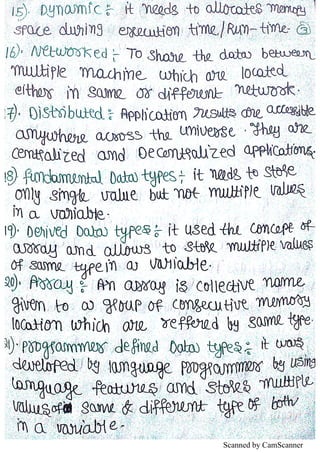 15). Dynamic :- it needs to allocates memory
space during execution time/Run-time.
16). Networked :- To share the data between
multiple machine which are located
either in same or different network.
17). Distributed :- Application results are accessible
anywhere across the universe. They are
centralized and Decentralized applications.
18) fundamental Data types :- it needs to store
only single value but not multiple values
in a variable.
19). Derived Data types :- it used the concept of
array and allows to store multiple values
of same type in a variable.
20). Array :- An array is collective name
given to a group of consecutive memory
location which are reffered by same type.
21). programmer defined Data types :- it was
developed by language programmer by using
language features and stores multiple
values of same & different type of both
in a variable.
Scanned by CamScanner